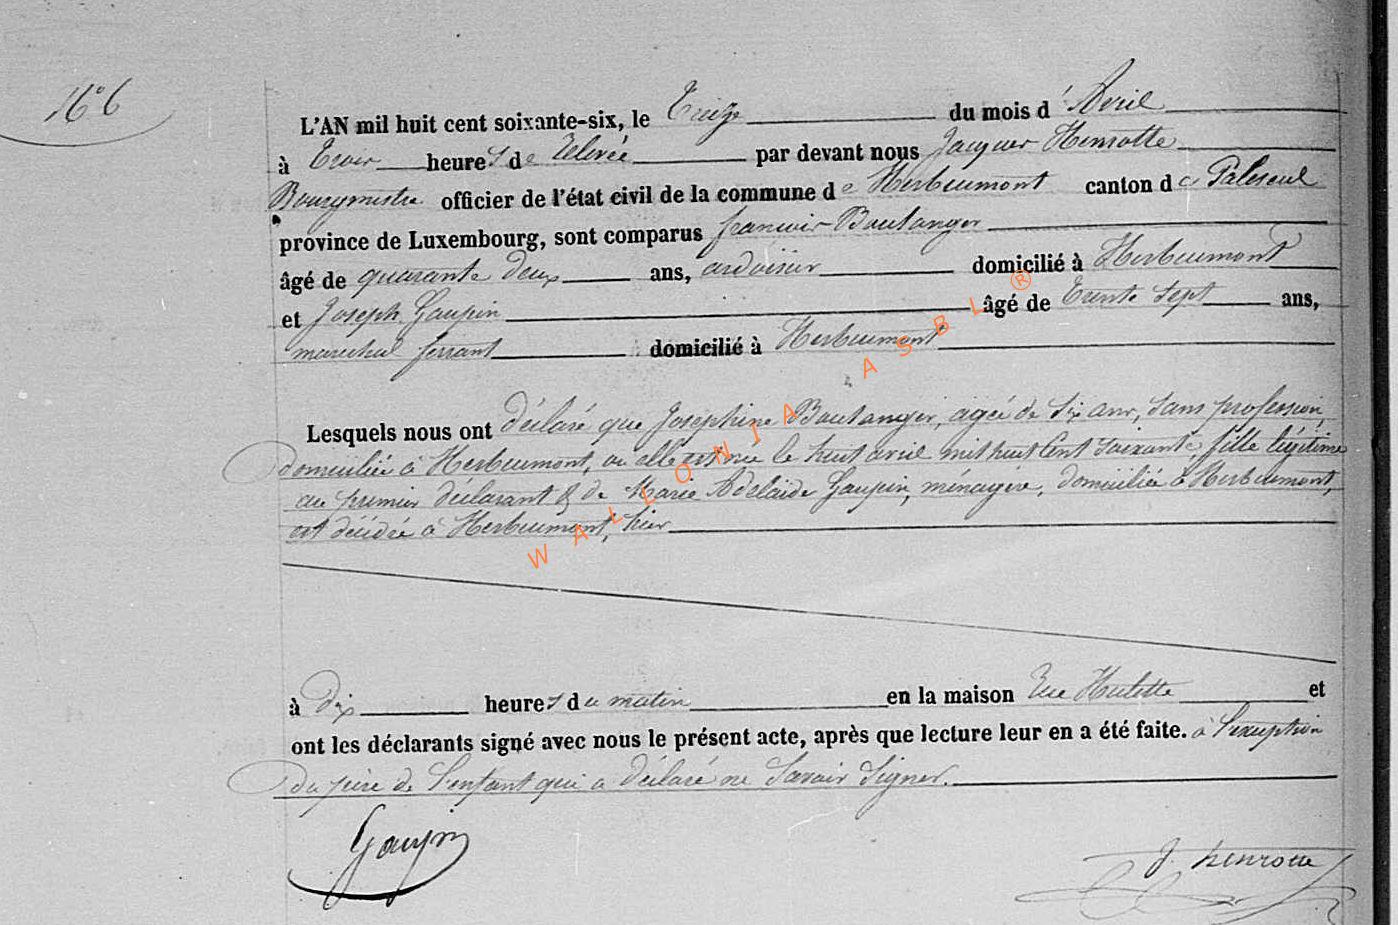 N° 6
L'AN mil huit cent soixante-six, le Treize du mois d'Avril
à Trois heures de Relevée par devant nous Jacques Henrotte
Bourgmestre officier de l'état civil de la commune de Herbeumont canton de Paliseul
province de Luxembourg, sont comparus françois Boulanger
âgé de quarante deux ans, ardoisier domicilié à Herbeumont
et Joseph Gaupin âgé de Trente Sept ans,
marechal ferrant domicilié à Herbeumont
Lesquels nous ont déclaré que Josephine Boulanger, agée de Six ans, Sans profession,
domiciliée à Herbeumont, où elle est née le huit avril mil huit Cent Soixante, fille légitime
au premier déclarant & de Marie Adelaïde Gaupin, ménagère, domiciliée à Herbeumont,
est décédée à Herbeumont, hier
à Dix heures du matin en la maison Rue Hulette et
ont les déclarants signé avec nous le présent acte, après que lecture leur en a été faite. à l'exception
du père de l'enfant qui a Déclaré ne Savoir Signer.
Gaupin
J. henrotte
WALLONIA ASBL ®